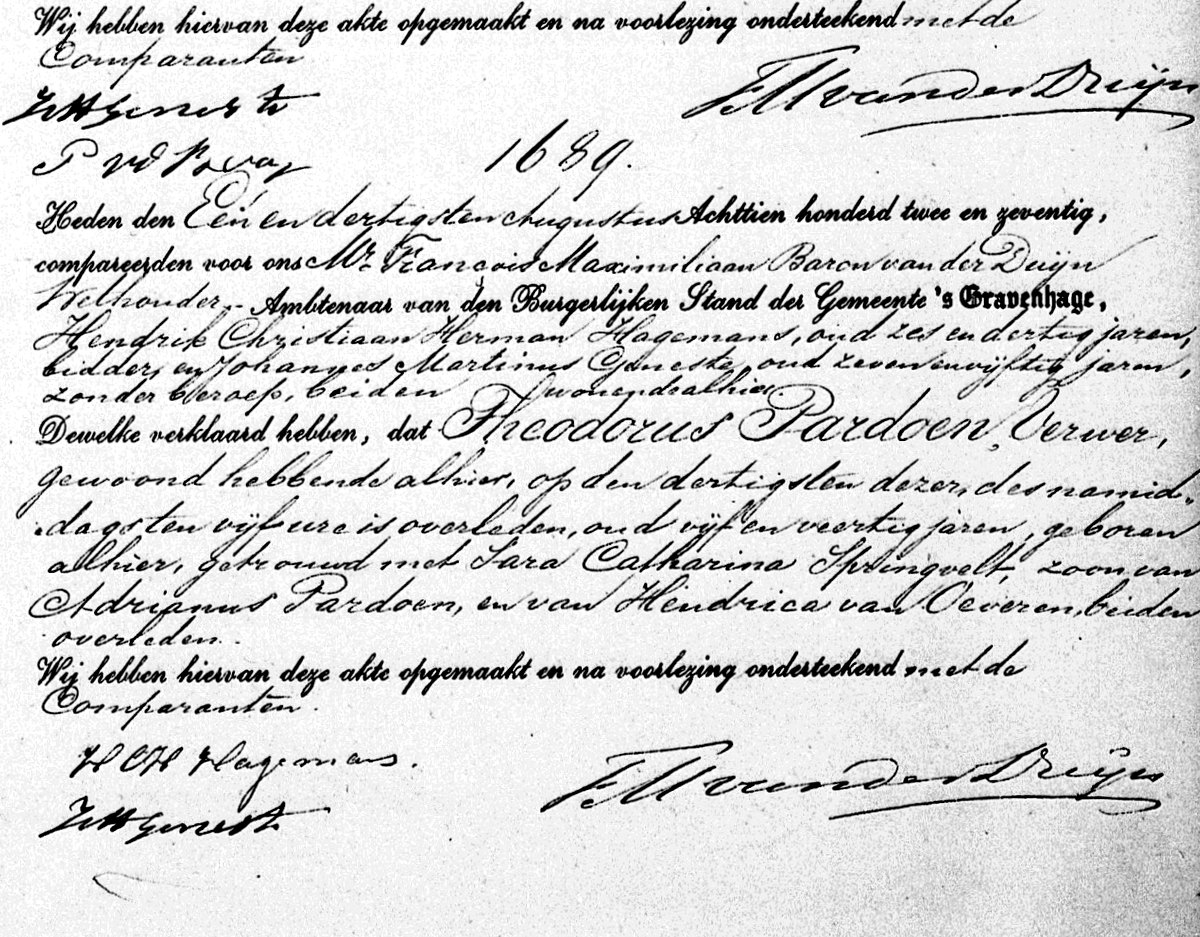 Wij hebben hiervan deze akte opgemaakt en na voorlezing onderteekend met de
Comparanten
FM van der Duijn
JM Geneste
1689.
Heden den Een en dertigsten Augustus Achttien honderd twee en zeventig,
compareerden voor ons Mr. François Maximiliaan Baron van der Duijn
Wethouder, Ambtenaar van den Burgerlijken Stand der Gemeente 's Gravenhage,
Hendrik Christiaan Herman Hagemans, oud zes en dertig jaren,
bidder, en Johannes Martinus Geneste, oud zeven en vijftig jaren,
zonder beroep, beiden wonende alhier.
Dewelke verklaard hebben, dat Theodorus Pardoen, Verwer,
gewoond hebbende alhier, op den dertigsten dezer, des namid-
dags ten vijf ure is overleden, oud vijf en veertig jaren, geboren
alhier, getrouwd met Sara Catharina Springvelt, zoon van
Adrianus Pardoen, en van Hendrica van Oeveren, beiden
overleden.
Wij hebben hiervan deze akte opgemaakt en na voorlezing onderteekend met de
Comparanten.
H C H Hagemans.
FM van der Duijn
JM Geneste